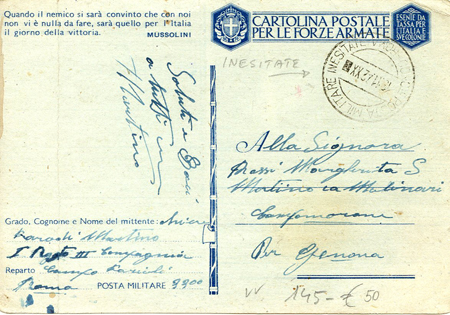 Quando il nemico si sarà convinto che con noi
non vi è nulla da fare, sarà quello per l'Italia
il giorno della vittoria.
MUSSOLINI
CARTOLINA POSTALE
PER LE FORZE ARMATE
ESENTE DA
TASSA PER
L'ITALIA E
SUE COLONIE
INESITATE
Saluti e Baci
a tutti
Martino
Alla Signora
Rossi Margherita
Martino
Campomorone
Per Genova
Grado, Cognome e Nome del mittente:
Martino
I III Compagnia
Reparto Campo
Roma POSTA MILITARE 3300
145 - € 50